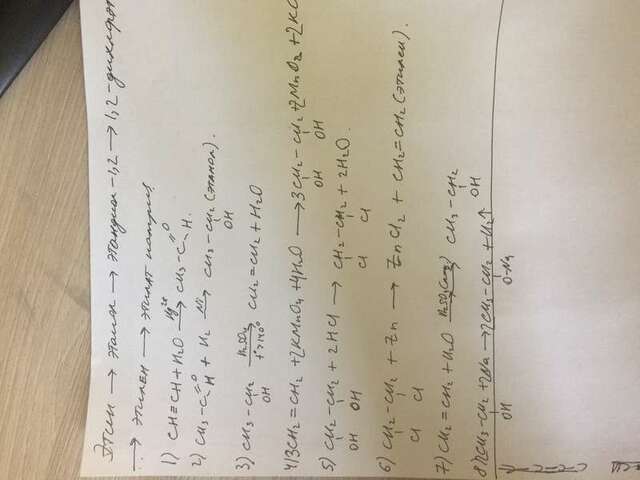 Этин → этанол → этандиол-1,2 → 1,2-дихлорэт
... → этилен → этилат натрия.
1) CH≡CH + H₂O —Hg²⁺→ CH₃-C(=O)H.
2) CH₃-C(=O)H + H₂ —Ni→ CH₃-CH₂(OH) (этанол).
3) CH₃-CH₂(OH) —H₂SO₄, t°>140°→ CH₂=CH₂ + H₂O
4) 3CH₂=CH₂ + 2KMnO₄ + 4H₂O → 3CH₂(OH)-CH₂(OH) + 2MnO₂ + 2KO
5) CH₂(OH)-CH₂(OH) + 2HCl → CH₂(Cl)-CH₂(Cl) + 2H₂O.
6) CH₂(Cl)-CH₂(Cl) + Zn → ZnCl₂ + CH₂=CH₂ (этилен).
7) CH₂=CH₂ + H₂O —H₂SO₄→ CH₃-CH₂(OH)
8) 2CH₃-CH₂(OH) + 2Na → 2CH₃-CH₂(O-Na) + H₂↑